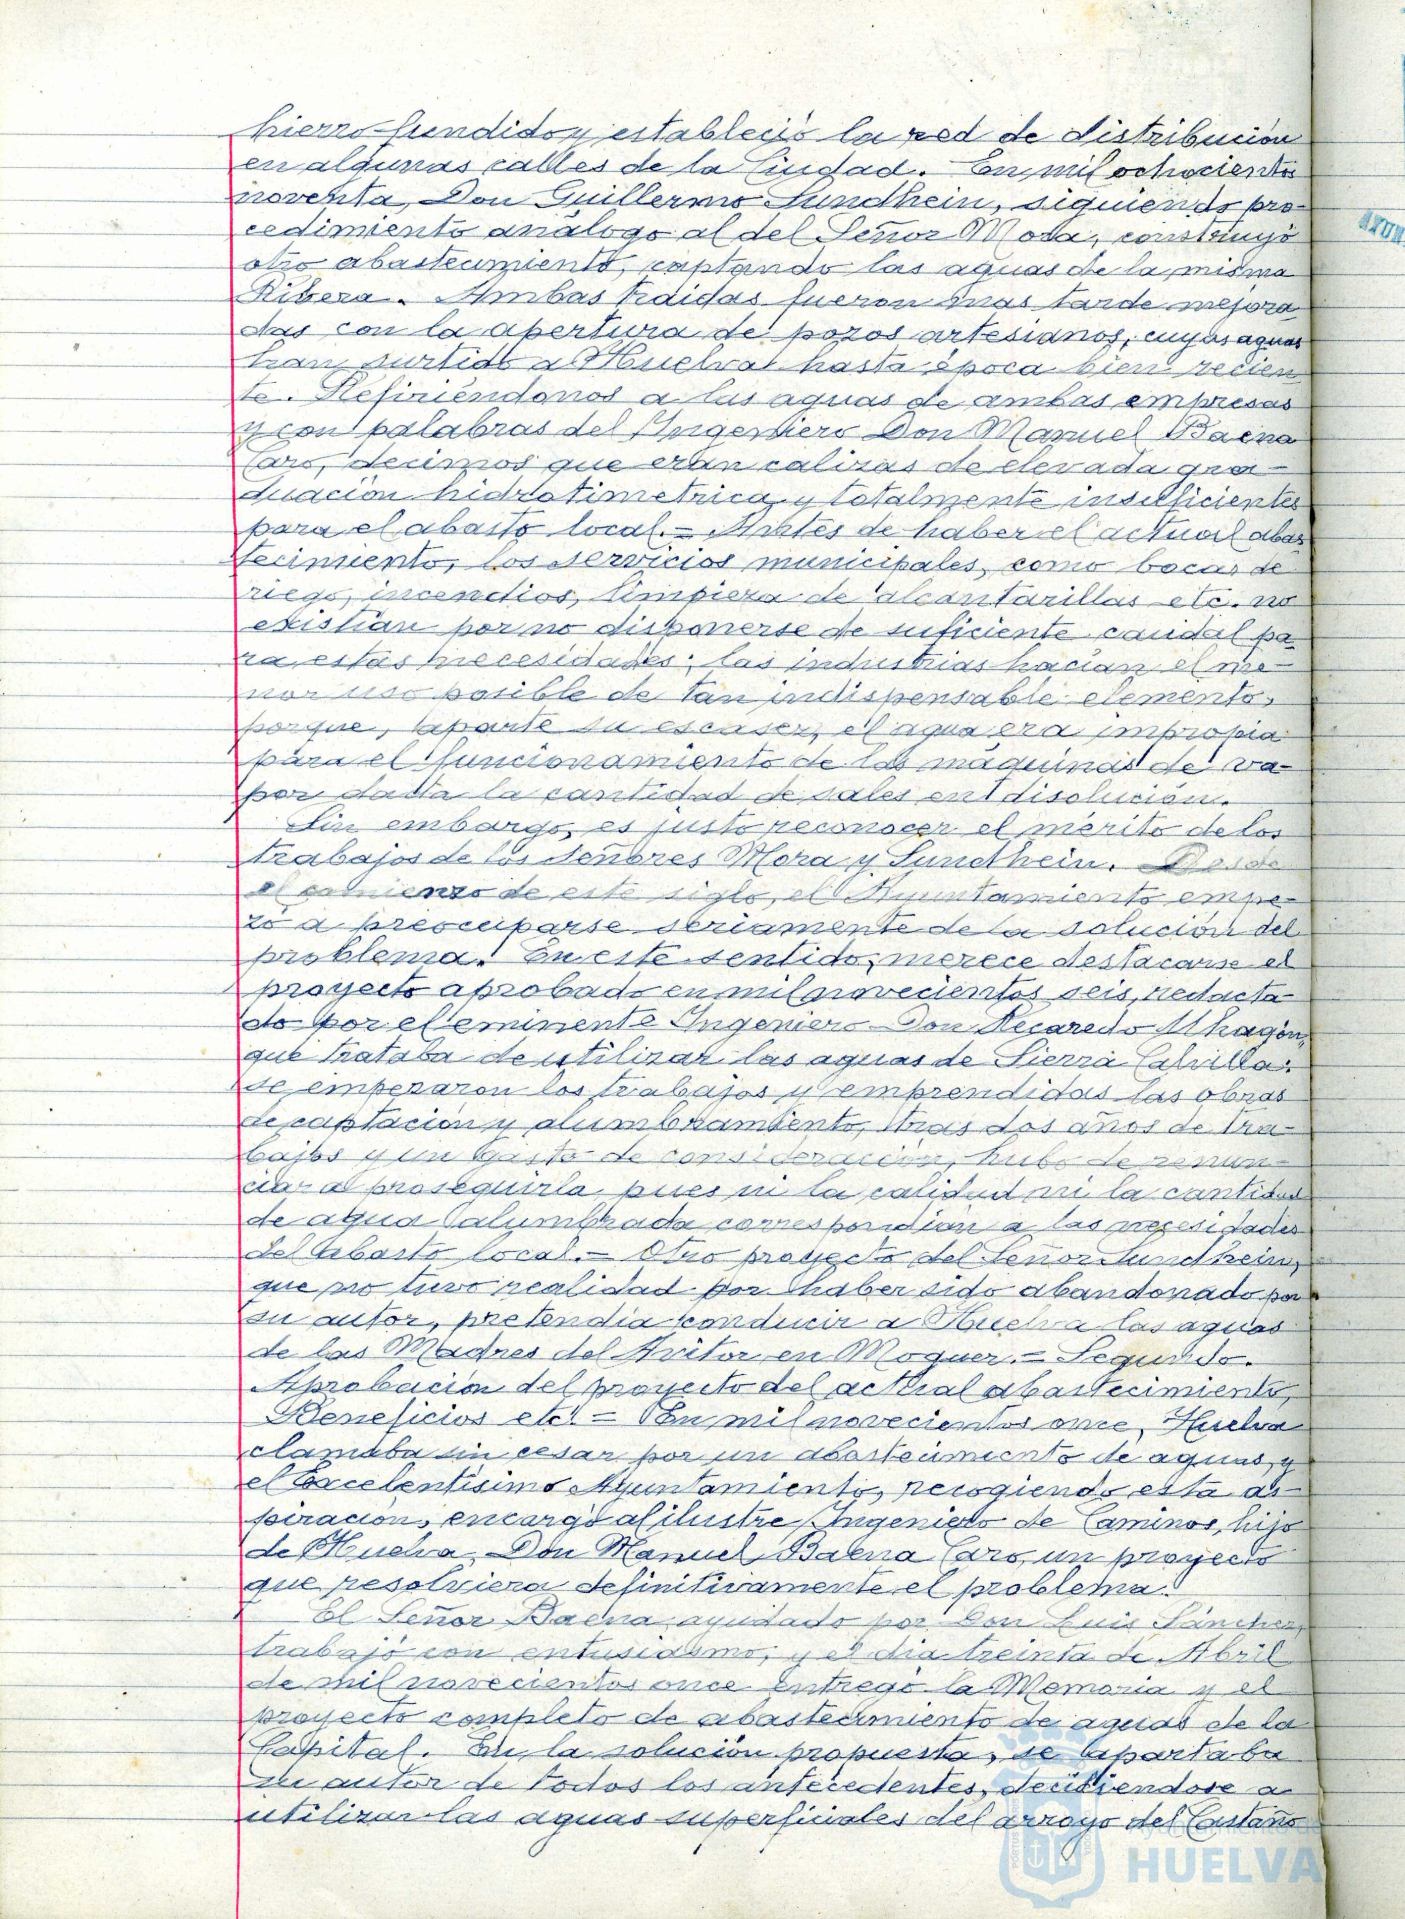 hierro fundido y estableció la red de distribución
en algunas calles de la Ciudad. En mil ochocientos
noventa, Don Guillermo Sundhein, siguiendo pro-
cedimiento análogo al del Señor Mora, construyó
otro abastecimiento, captando las aguas de la misma
Ribera. Ambas traidas fueron mas tarde mejora
das con la apertura de pozos artesianos, cuyas aguas
han surtido a Huelva hasta época bien recien
te. Refiriéndonos a las aguas de ambas empresas
y con palabras del Ingeniero Don Manuel Baena
Caro, decimos que eran calizas de elevada gra-
duación hidrotimetrica y totalmente insuficientes
para el abasto local.= Antes de haber el actual abas
tecimiento, los servicios municipales, como bocas de
riego, incendios, limpieza de alcantarillas etc. no
existian por no disponerse de suficiente caudal pa
ra estas necesidades; las industrias hacian el me-
nor uso posible de tan indispensable elemento,
porque, aparte su escasez, el agua era impropia
para el funcionamiento de las máquinas de va-
por dada la cantidad de sales en disolución.
Sin embargo, es justo reconocer el mérito de los
trabajos de los Señores Mora y Sundhein. Desde
el comienzo de este siglo, el Ayuntamiento empe-
zó a preocuparse seriamente de la solución del
problema. En este sentido, merece destacarse el
proyecto aprobado en mil novecientos seis, redacta-
do por el eminente Ingeniero Don Recaredo Uhagón,
que trataba de utilizar las aguas de Sierra Calvilla:
se empezaron los trabajos y emprendidas las obras
de captación y alumbramiento, tras dos años de tra-
bajos y un gasto de consideración, hubo de renun-
ciar a proseguirla pues ni la calidad ni la cantidad
de agua alumbrada correspondian a las necesidades
del abasto local.= Otro proyecto del Señor Sundhein,
que no tuvo realidad por haber sido abandonado por
su autor, pretendia conducir a Huelva las aguas
de las Madres del Avitor en Moguer.= Segundo.
Aprobación del proyecto del actual abastecimiento,
Beneficios etc.= En mil novecientos once, Huelva
clamaba sin cesar por un abastecimiento de aguas, y
el Excelentísimo Ayuntamiento, recogiendo esta as-
piración, encargó al ilustre Ingeniero de Caminos, hijo
de Huelva, Don Manuel Baena Caro, un proyecto
que resolviera definitivamente el problema.
El Señor Baena, ayudado por Don Luis Sánchez,
trabajó con entusiasmo, y el dia treinta de Abril
de mil novecientos once entregó la Memoria y el
proyecto completo de abastecimiento de aguas de la
Capital. En la solución propuesta, se apartaba
su autor de todos los antecedentes, decidiendose a
utilizar las aguas superficiales del arroyo del Castaño
Ayuntamiento de
HUELVA